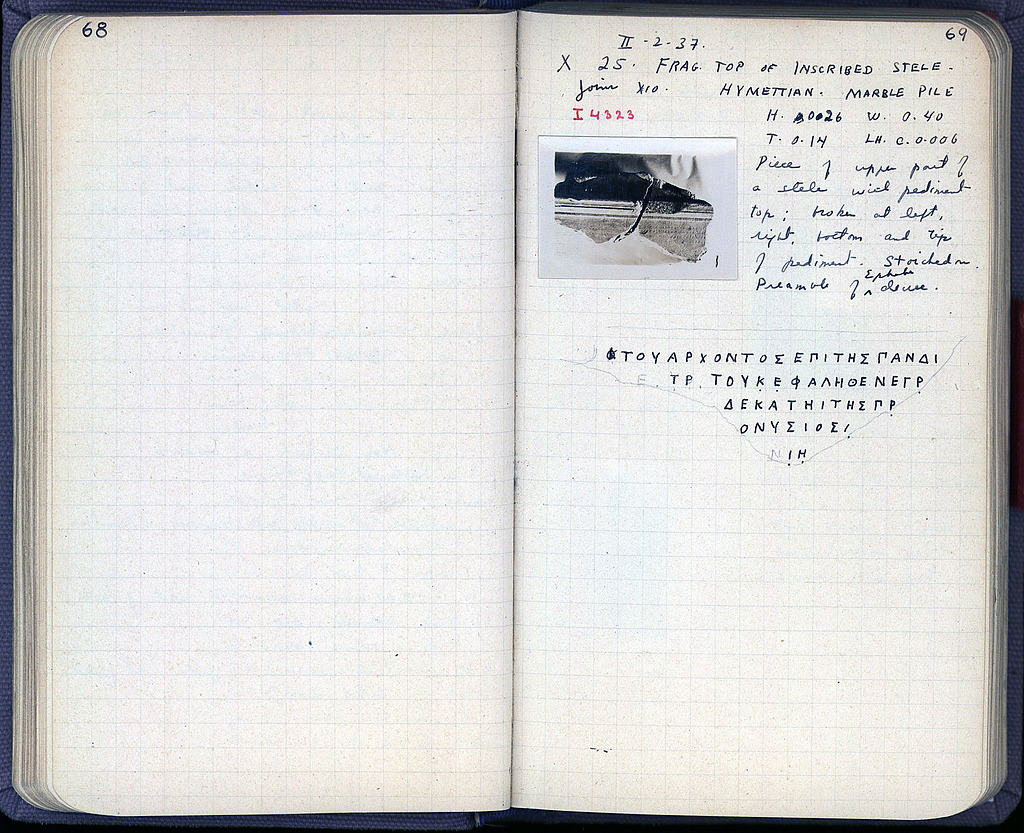 68
69
II-2-37.
X 25. FRAG. TOP OF INSCRIBED STELE.
Joins X10. HYMETTIAN. MARBLE PILE
I 4323
H. 0.026 W. 0.40
T. 0.14 LH. C. 0.006
Piece of upper part of
a stele with pediment
top; broken at left,
right, bottom and tip
of pediment. Stoichedon.
Preamble of Ephebe decree.
1
ΤΟΥΑΡΧΟΝΤΟΣΕΠΙΤΗΣΠΑΝΔΙ
Ε. ΤΡ. ΤΟΥΚΕΦΑΛΗΘΕΝΕΓΡ
ΔΕΚΑΤΗΙΤΗΣΠΡ
ΟΝΥΣΙΟΣΙ
ΝΙΗ